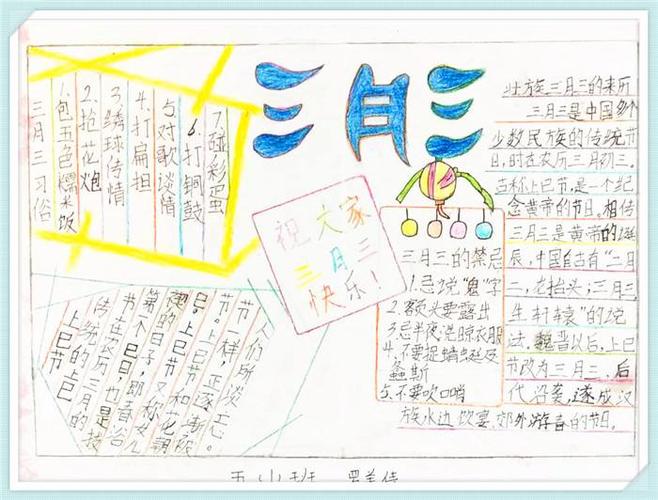 三月三
三月三习俗
1.包五色糯米饭
2.抢花炮
3.绣球传情
4.打扁担
5.对歌谈情
6.打铜鼓
7.碰彩蛋
祝大家
三月三
快乐!
上巳节
传统的上巳
节在农历三月的
第一个巳日,也是祓
禊的日子,即春浴
日。上巳节又称女儿
节。上巳节和花朝
节一样,正逐渐被
人们所淡忘。
三月三的禁忌
1.忌说“鬼”字
2.额头要露出
3.忌半夜洗晾衣服
4.不要捉蜻蜓及
螽斯
5.不要吹口哨
壮族三月三的来历
三月三是中国多个
少数民族的传统节
日,时在农历三月初三。
古称上巳节,是一个纪
念黄帝的节日。相传
三月三是黄帝的诞
辰,中国自古有“二月
二,龙抬头;三月三,
生轩辕”的说
法。魏晋以后,上巳
节改为三月三,后
代沿袭,遂成汉
族水边饮宴、郊外游春的节日。